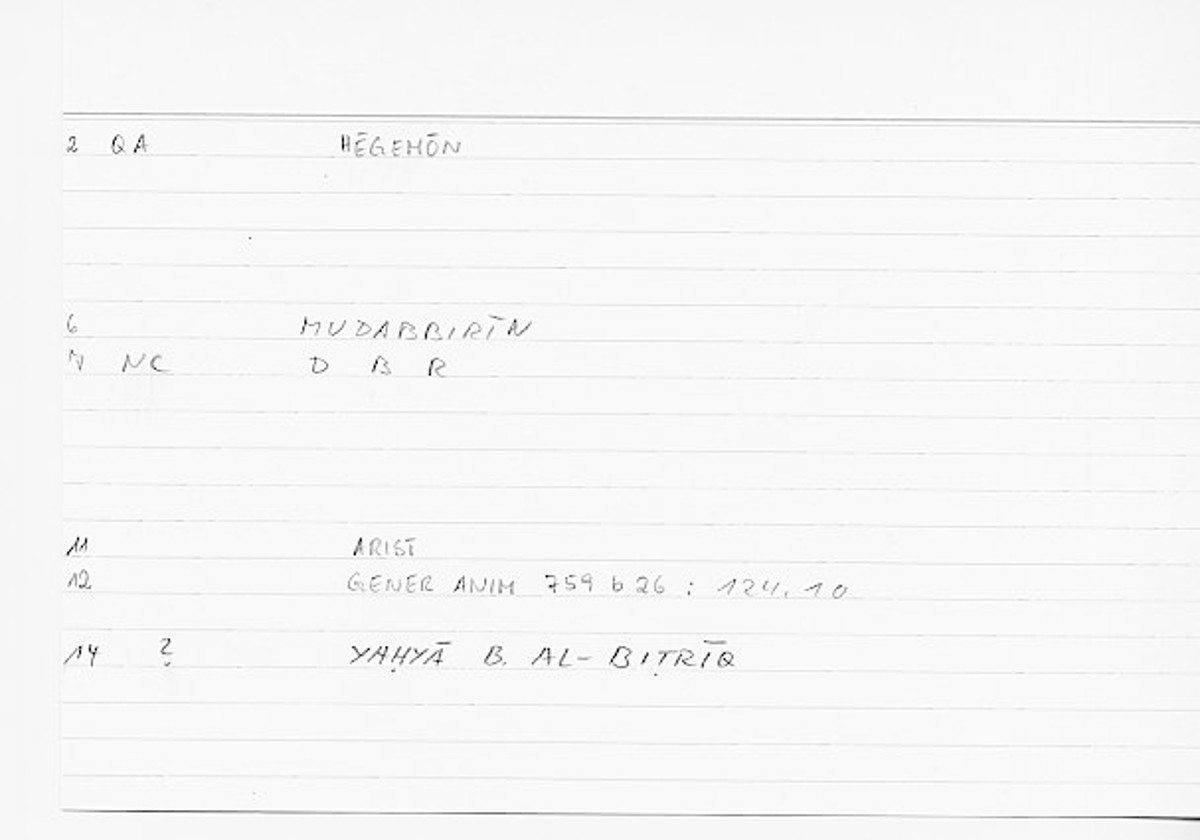 2 QA HĒGEMŌN
6 MUDABBIRĪN
7 NC D B R
11 ARIST
12 GENER ANIM 759 b 26 : 124, 10
14 ? YAḤYĀ B. AL-BIṬRĪQ